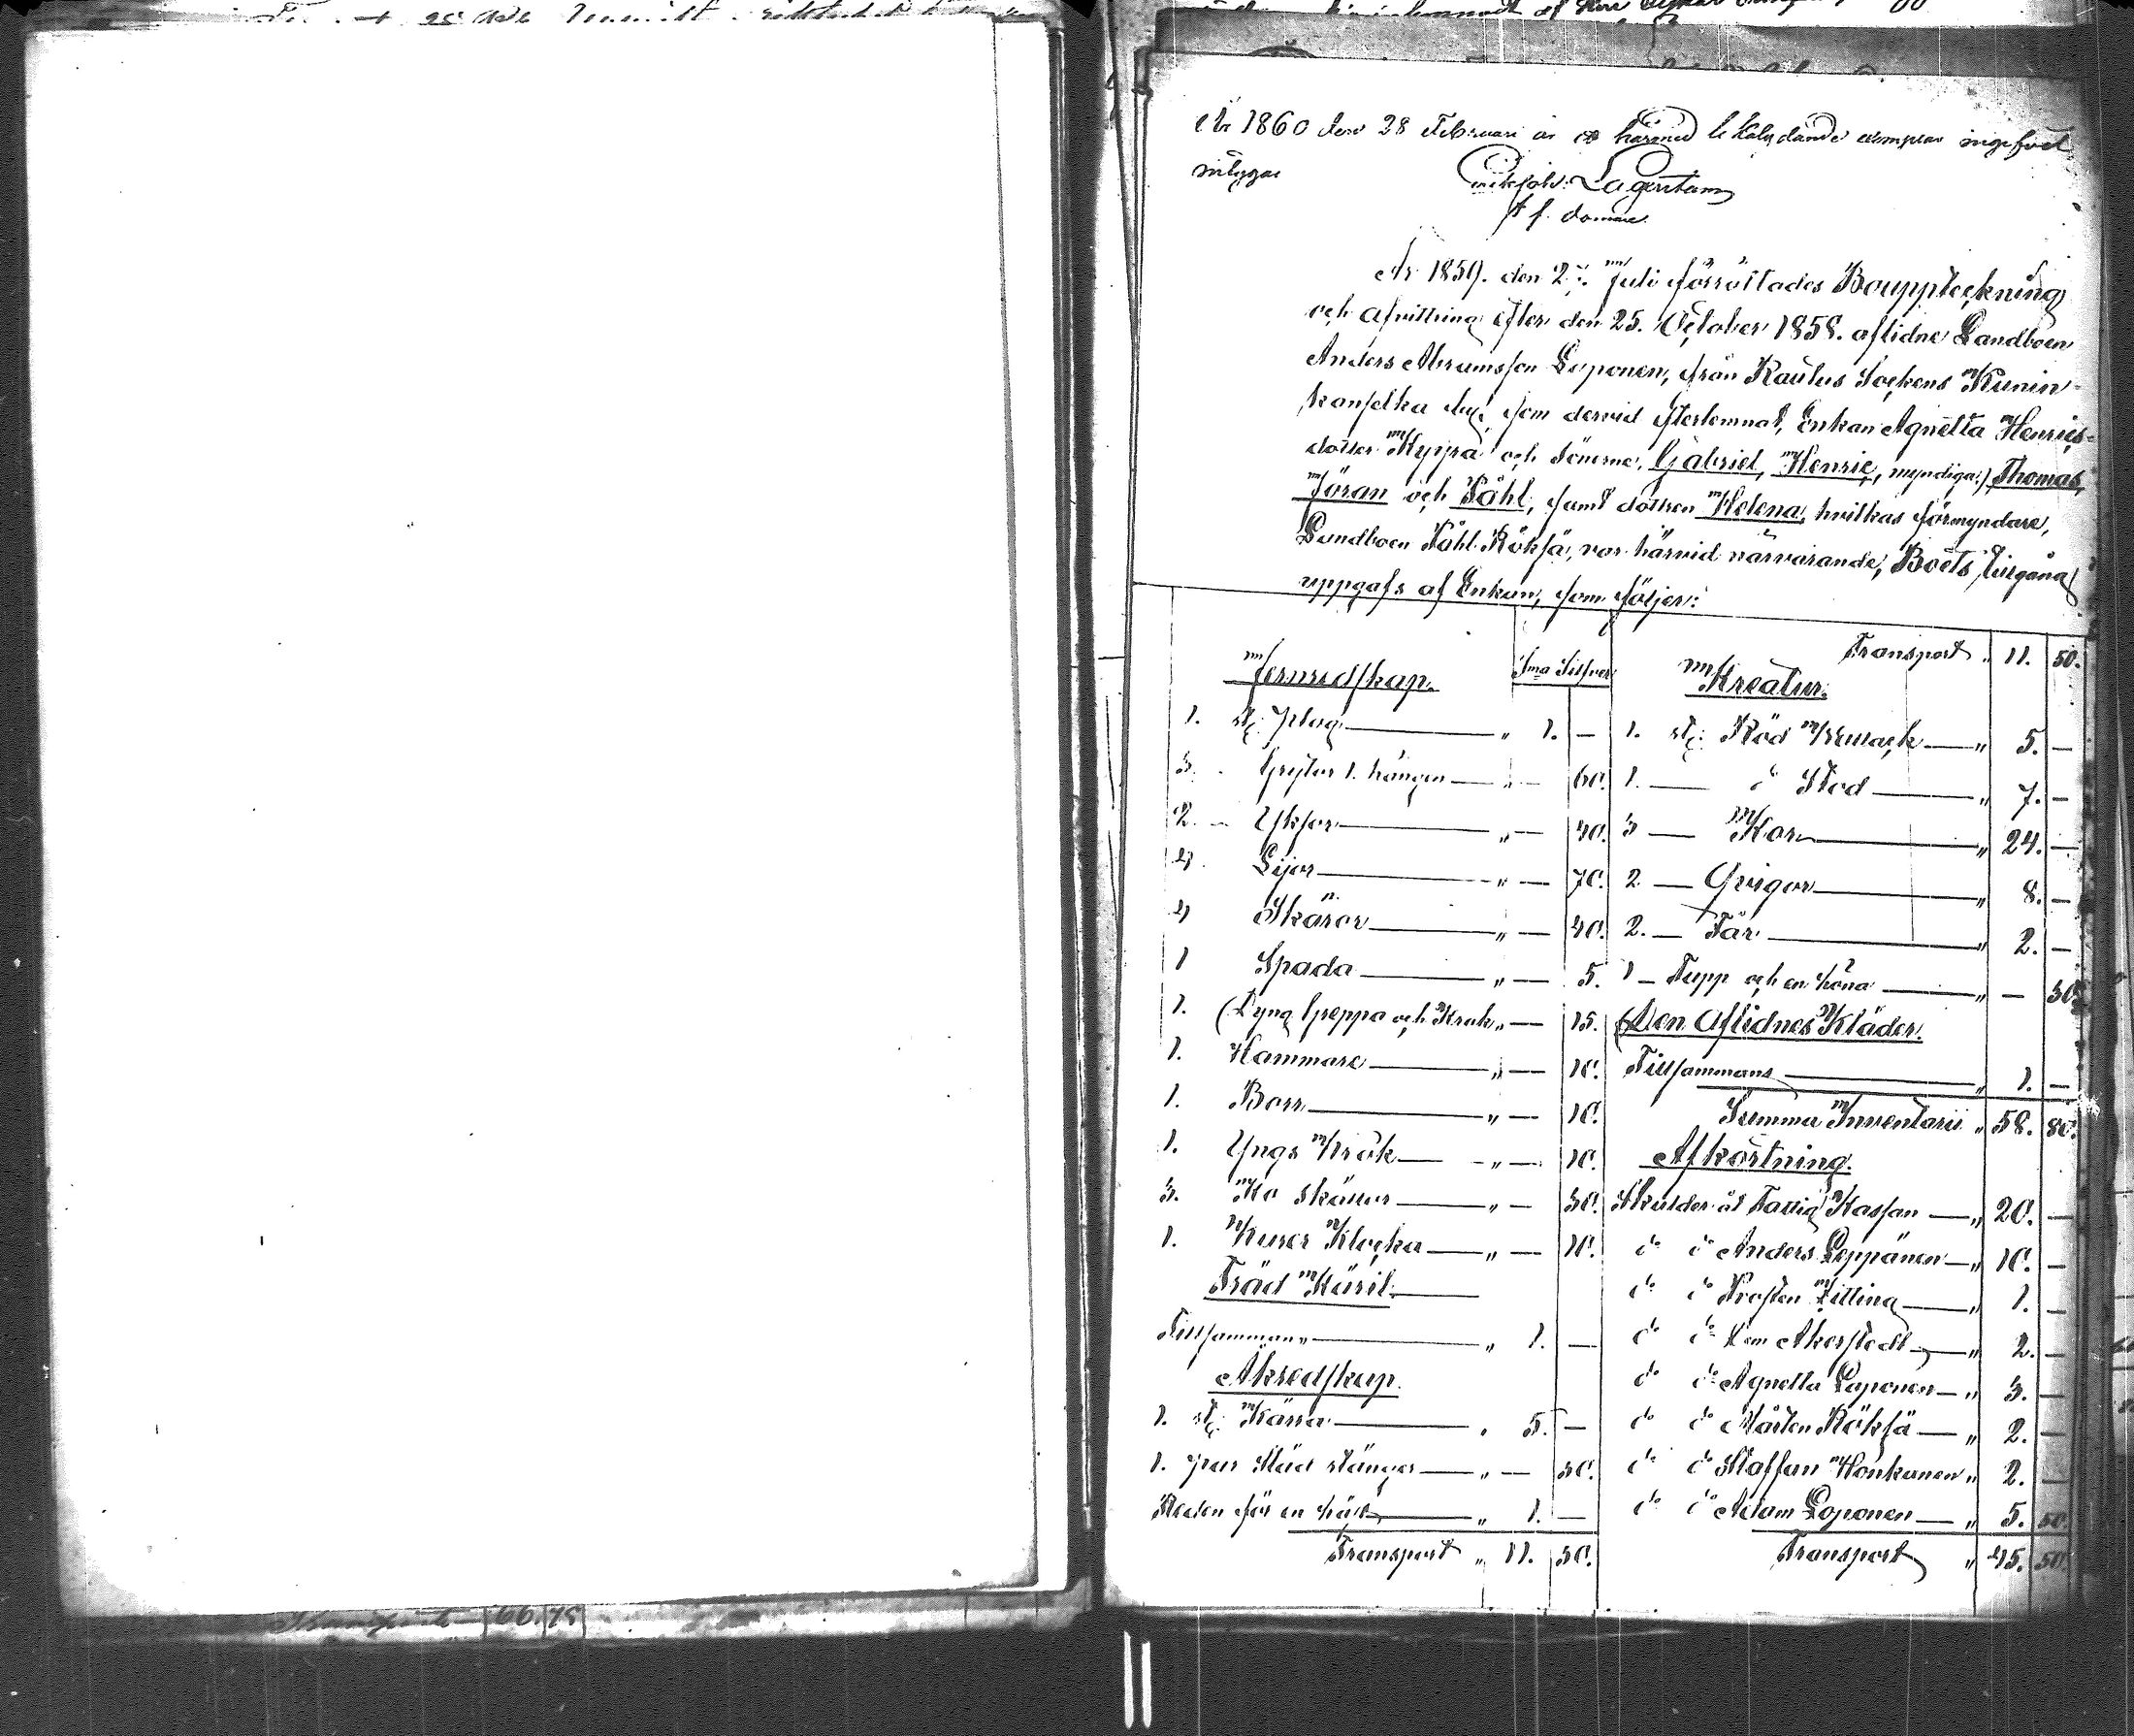 År 1860 den 28 Februari är härmed likalydande exemplar ingifvet
intygar
Lagerstam
t. f. domare
År 1859. den 2. Juli förrättades Bouppteckning
och afvittring efter den 25. October 1858. aflidne Landboen
Anders Abramsson Loponen, från Rautus Sockens Kunin-
kanselkä by, som dervid efterlemnat, Enkan Agnetta Henrics-
dotter Kyyrä och Sönerne, Gabriel, Henric, myndiga, Thomas,
Jöran och Påhl, samt dottren Helena, hvilkas förmyndare,
Landboen Påhl Röksä, var härvid närvarande, Boets Tilgång
uppgafs af Enkan, som följer:
Jernredskap. Sma Silfver
1. st: Plog " 1. —
3. Grytor 1. hängen " — 60.
2. — Yxor " — 40.
4. Lijor " — 70.
4 Skäror " — 40.
1 Spada " — 5.
1. Dyng Greppa och Krok " — 15.
1. Hammare " — 10.
1. Borr " — 10.
1. Krok " — 10.
3. Ko skällor " — 30.
1. Kurer Klocka " — 10.
Träd Käril
Tillsammans " 1. —
Åkredskap.
1. st: Kärra " 5. —
1. par Släd stänger " — 50.
Redon för en häst " 1. —
Transport " 11. 50.
Transport " 11. 50.
Kreatur.
1. st: Röd " 5. —
1. — do Stod " 7. —
3 — Kor " 24. —
2 — Qvigor " 8. —
2. — Får " 2. —
1 — Tupp och en höna " — 30.
Den Aflidnes Kläder.
Tillsammans " 1. —
Summa Inventarii " 58. 80.
Afkortning.
Skulder åt Fattig Kassan " 20. —
do do Anders Leppänen " 10. —
do do Prosten Zitting " 1. —
do do Akerstedt " 2. —
do do Agnetta Loponen " 3. —
do do Mårten Röksä " 2. —
do do Staffan Honkanen " 2. —
do do Adam Loponen " 5. 50.
Transport " 45. 50.